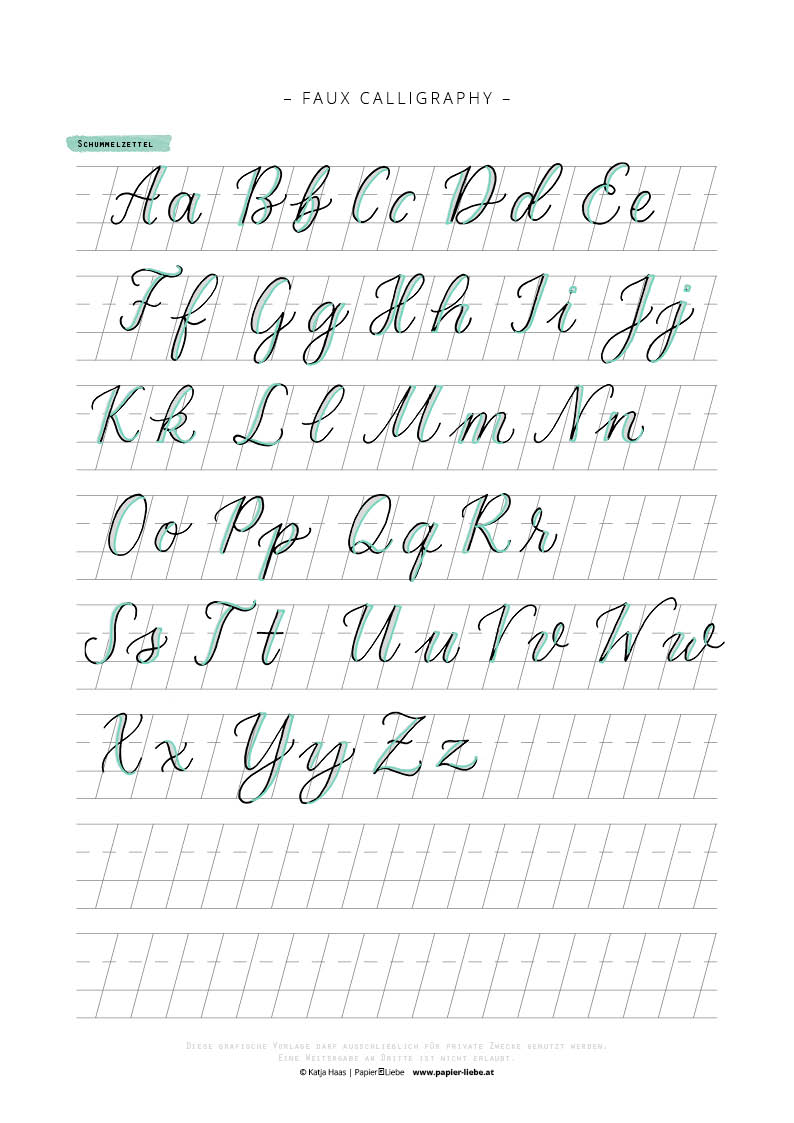 – FAUX CALLIGRAPHY –
SCHUMMELZETTEL
Aa Bb Cc Dd Ee
Ff Gg Hh Ii Jj
Kk Ll Mm Nn
Oo Pp Qq Rr
Ss Tt Uu Vv Ww
Xx Yy Zz
DIESE GRAFISCHE VORLAGE DARF AUSSCHLIEBLICH FÜR PRIVATE ZWECKE GENUTZT WERDEN.
EINE WEITERGABE AN DRITTE IST NICHT ERLAUBT.
© Katja Haas | Papier Liebe www.papier-liebe.at